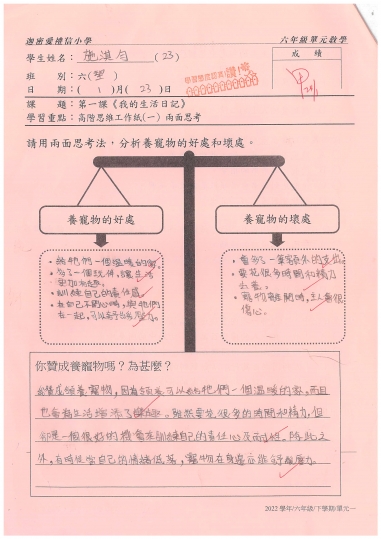 迦密愛禮信小學 六年級單元教學
學生姓名：施淇勻(23)
成績
班 別：六(望)
甲
日 期：(1)月(23)日
課 題：第一課《我的生活日記》
學習重點：高階思維工作紙(一) 兩面思考
請用兩面思考法，分析養寵物的好處和壞處。
養寵物的好處
• 給牠們一個溫暖的家。
• 多了一個玩伴，讓生活
更加有趣。
• 訓練自己的責任感。
• 在自己不開心時，與牠們
在一起，可以紓出壓力。
養寵物的壞處
• 會多了一筆額外的支出
• 要花很多時間和精力
去養。
• 寵物離開時，主人會很
傷心。
你贊成養寵物嗎？為甚麼？
我贊成領養寵物，因為領養可以給牠們一個溫暖的家，而且
也會為生活增添了樂趣。雖然要花很多的時間和精力，但
卻是一個很好的機會去訓練自己的責任心及耐性。除此之
外，有時候當自己的情緒低落，寵物在身邊亦能紓解壓力。
2022學年/六年級/下學期/單元一